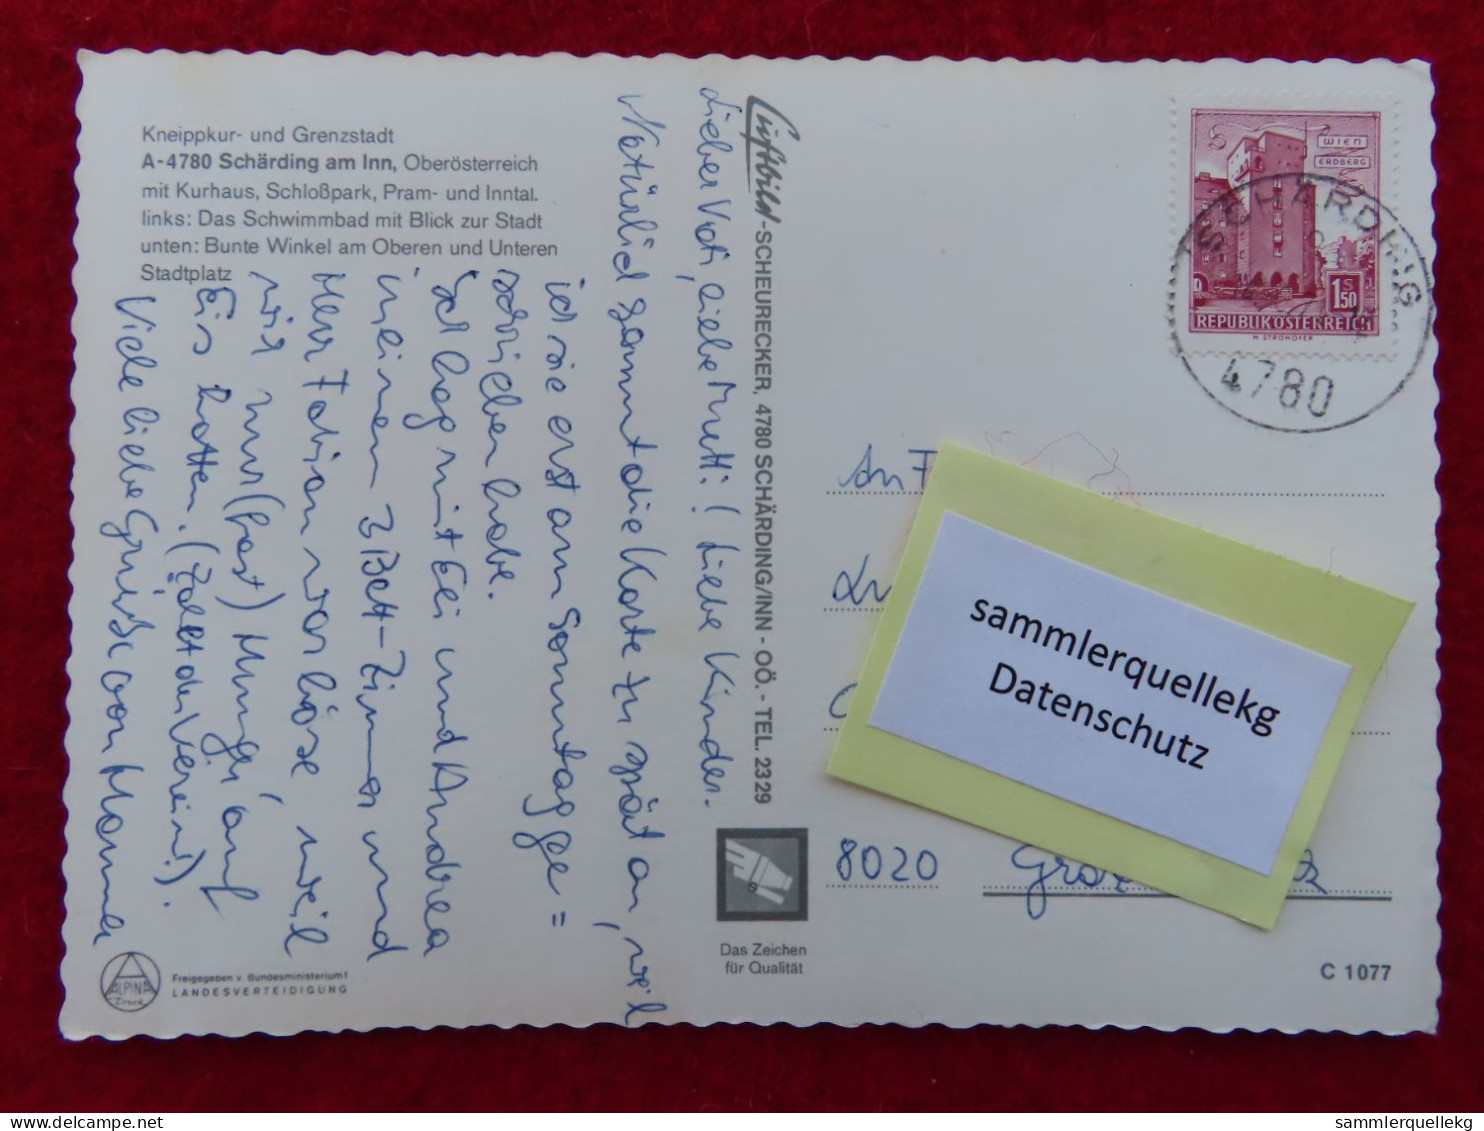 Kneippkur- und Grenzstadt
A-4780 Schärding am Inn, Oberösterreich
mit Kurhaus, Schloßpark, Pram- und Inntal.
links: Das Schwimmbad mit Blick zur Stadt
unten: Bunte Winkel am Oberen und Unteren
Stadtplatz
Lieber Vati, Liebe Mutti! Liebe Kinder.
Natürlich kommt die Karte zu spät an, weil
ich sie erst am Sonntag ge=
schrieben habe.
Ich lag mit Eli und Andrea
in einem 3 Bett-Zimmer und
Herr Fabian war böse, weil
wir nur (fast) Hunger auf
Eis hatten. (Zelt der Verein!).
Viele liebe Grüße von Hanna
Luftbild-SCHEURECKER, 4780 SCHÄRDING/INN - OÖ. - TEL. 2329
WIEN
ERDBERG
S
1.50
REPUBLIK ÖSTERREICH
H. STROHOFER
SCHÄRDING
4780
An F
sammlerquellekg
Datenschutz
8020
Das Zeichen
für Qualität
C 1077
ALPINA
Freigegeben v. Bundesministerium f
LANDESVERTEIDIGUNG
sammlerquellekg
delcampe.net